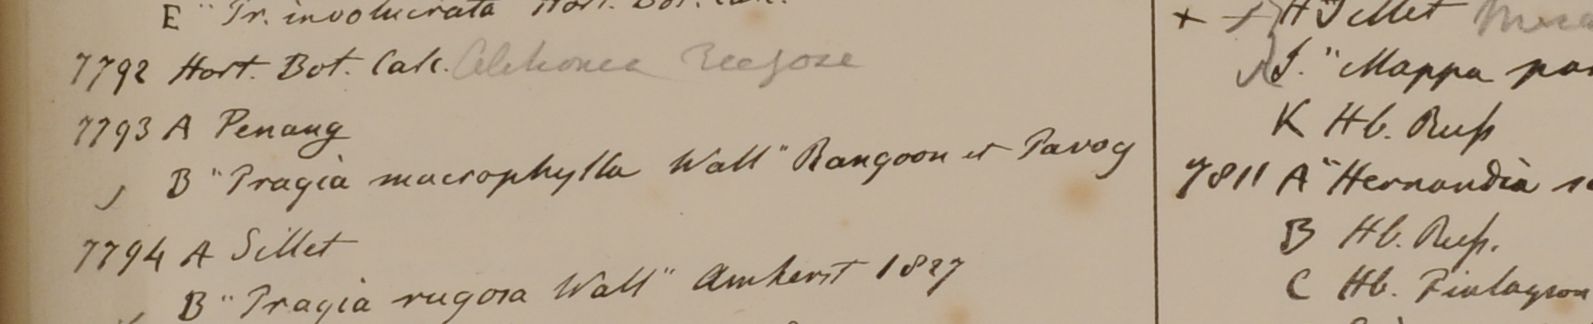 E "Tr. involucrata Hort. Bot. Calc.
7792 Hort. Bot. Calc.
7793 A Penang
B "Tragia macrophylla Wall" Rangoon et Tavoy
7794 A Sillet
B "Tragia rugosa Wall" Amherst 1827
H Sillet
J. "Mappa
K Hb. Russ
7811 A "Hernandia
B Hb. Russ.
C Hb. Finlayson